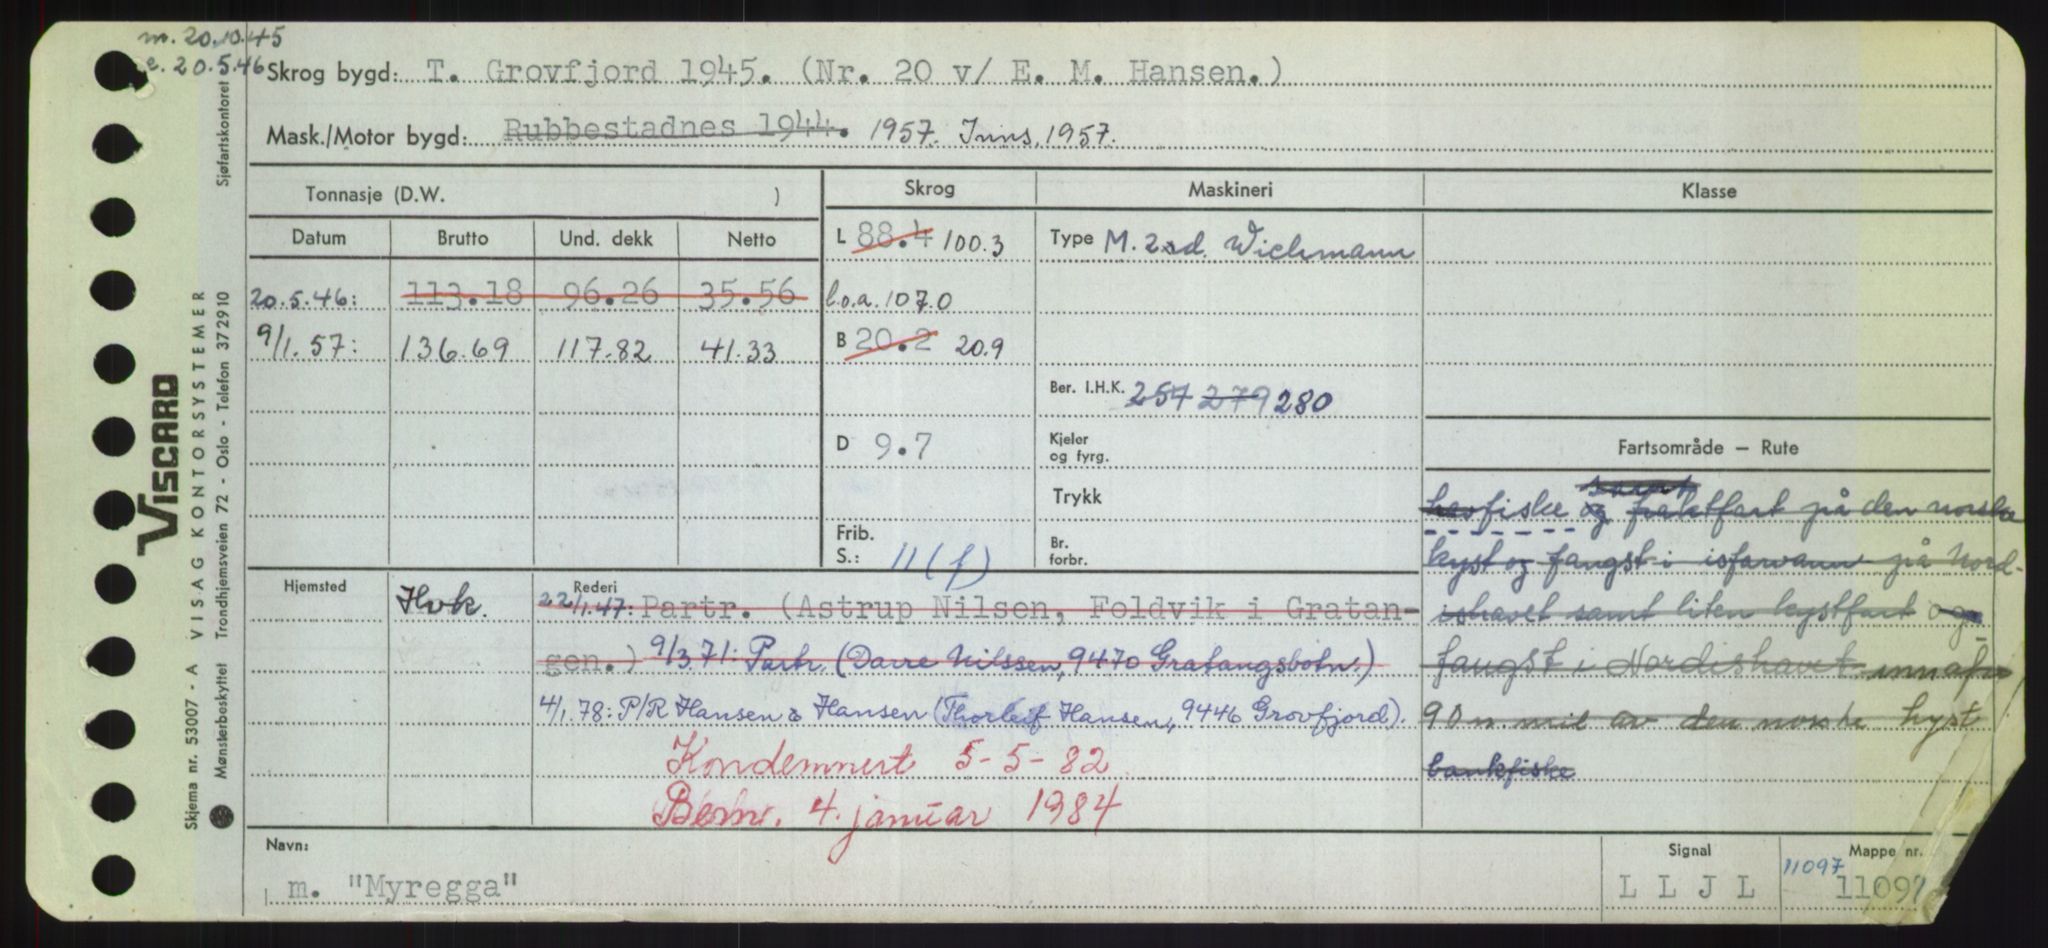 m. 20.10.45
e. 20.5.46
Skrog bygd: T. Grovfjord 1945. (Nr. 20 v/ E. M. Hansen.)
Mask./Motor bygd: Rubbestadnes 1944. 1957. Inns. 1957.
Tonnasje (D.W. )
Skrog
Maskineri
Klasse
Datum Brutto Und. dekk Netto
L 88.4 100.3
Type M. 2sd. Wichmann
20.5.46: 113.18 96.26 35.56
l.o.a. 107.0
9/1.57: 136.69 117.82 41.33
B 20.2 20.9
Ber. I.H.K. 257 279 280
D 9.7
Kjeler
og fyrg.
Trykk
Frib.
S.: 11 (f)
Br.
forbr.
Fartsområde — Rute
samt
havfiske og fraktfart på den norske
kyst og fangst i isfarvann på Nord-
ishavet samt liten kystfart og
fangst i Nordishavet innafor
90 n. mil av den norske kyst
bankfiske
Hjemsted
Hvk.
Rederi
22/1.47: Partr. (Astrup Nilsen, Foldvik i Gratan-
gen.) 9/3.71: Partr. (Darre Nilssen, 9470 Gratangsbotn.)
4/1.78: P/R Hansen & Hansen (Thorleif Hansen, 9446 Grovfjord).
Kondemnert 5-5-82
4. januar 1984
Navn:
m. "Myregga"
Signal
L L J L
Mappe nr.
11097
11097
VISCARD
VISAG KONTORSYSTEMER
Skjema nr. 53007 - A
Mønsterbeskyttet Trondhjemsveien 72 - Oslo - Telefon 372910
Sjøfartskontoret